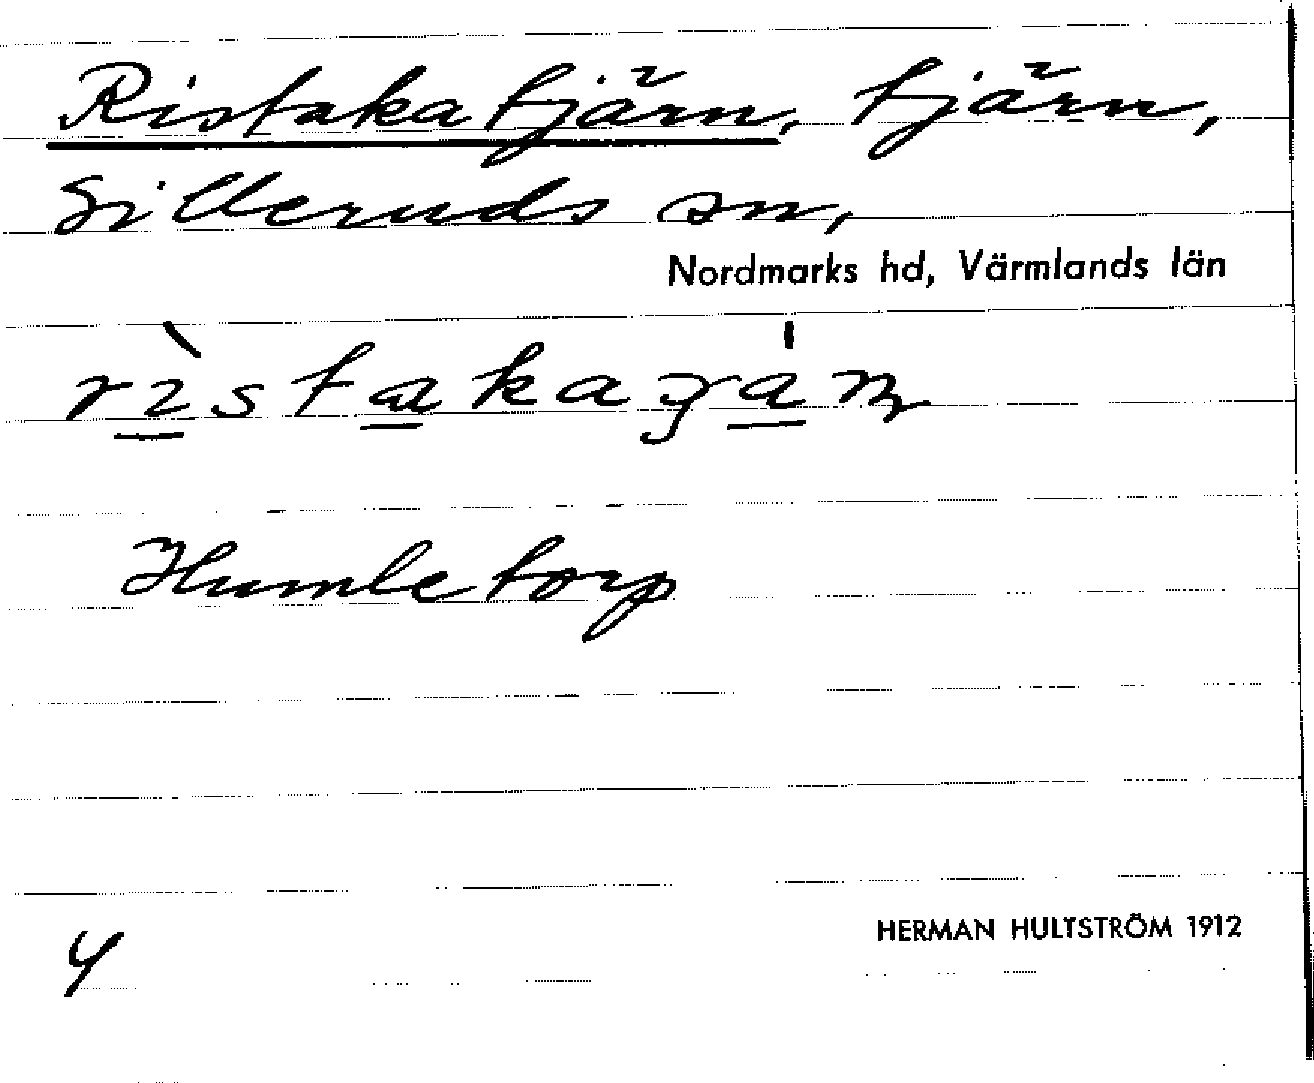 Ristakatjärn, tjärn,
Silleruds sn,
Nordmarks hd, Värmlands län
Humletorp
4
HERMAN HULTSTRÖM 1912